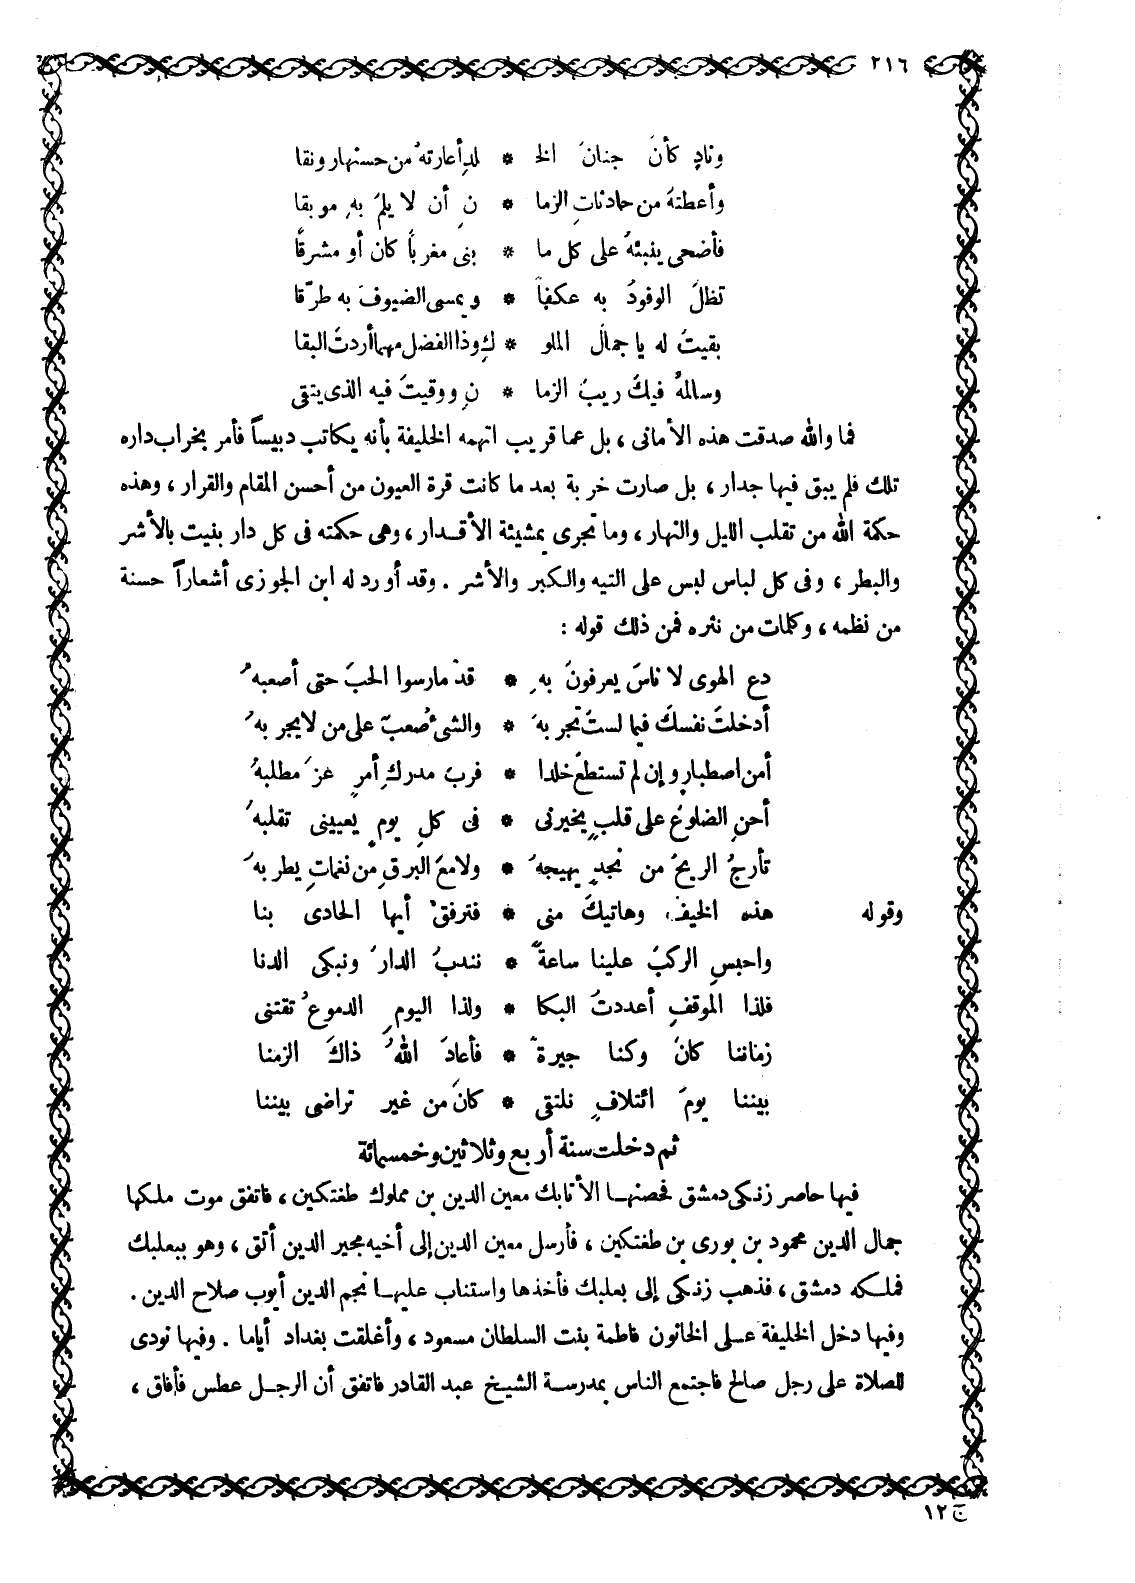 ٢١٦
ونادٍ كأنَ جنانَ الخ * لدِ أعارتهُ من حسنهار ونقا
وأعطتهَ من حادثاتِ الزما * نِ أن لا يلمَ بهِ موبقا
فأضحى ينبئهُ على كل ما * بنى مغرباً كان أو مشرقًا
تظلَ الوفودُ به عكفاً * ويمسى الضيوفَ به طرّقا
بقيتَ له يا جمالَ الملو * كِ وذا الفضل مهما أردتَ البقا
وسالمهُ فيكَ ريبَ الزما * نِ ووقيتَ فيه الذى يتقى
فما والله صدقت هذه الأمانى ، بل عما قريب اتهمه الخليفة بأنه يكاتب دبيساً فأمر بخراب داره
تلك فلم يبق فيها جدار ، بل صارت خربة بعد ما كانت قرة العيون من أحسن المقام والقرار ، وهذه
حكمة الله من تقلب الليل والنهار ، وما تجرى بمشيئة الأقدار ، وهى حكمته فى كل دار بنيت بالأشر
والبطر ، وفى كل لباس لبس على التيه والكبر والأشر . وقد أورد له ابن الجوزى أشعاراً حسنة
من نظمه ، وكلمات من نثره فمن ذلك قوله :
دع الهوى لا ناسَ يعرفونَ بهِ * قدْ مارسوا الحبَ حتى أصعبهُ
أدخلتَ نفسكَ فيما لستَ تجر بهَ * والشئُ صعبٌ على من لا يجر بهُ
أمن اصطبارٍ وإن لم تستطعْ خلدا * فربَ مدركِ أمرٍ عزَ مطلبهُ
أحنِ الضلوعَ على قلبٍ يخيرنى * فى كلِ يومٍ يعيينى تقلبهُ
تأرجُ الريحُ من نجدٍ يهيجهُ * ولامعَ البرقِ من نغماتِ يطربهُ
وقوله هذه الخيفَ وهاتيكَ منى * فترفقْ أيها الحادى بنا
واحبسِ الركبَ علينا ساعةً * نندبُ الدارَ ونبكى الدنا
فلذا الموقفِ أعددتُ البكا * ولذا اليومِ الدموعُ تقتنى
زماننا كانَ وكنا جيرةً * فأعادَ اللهُ ذاكَ الزمنا
بيننا يومَ ائتلافٍ نلتقى * كانَ من غير تراضى بيننا
ثم دخلت سنة أربع وثلاثين وخمسمائة
فيها حاصر زنكى دمشق فحصنها الأتابك معين الدين بن مملوك طغتكين ، فاتفق موت ملكها
جمال الدين محمود بن بورى بن طغتكين ، فأرسل معين الدين إلى أخيه مجير الدين أتق ، وهو ببعلبك
فملكه دمشق ، فذهب زنكى إلى بعلبك فأخذها واستناب عليها نجم الدين أيوب صلاح الدين .
وفيها دخل الخليفة على الخاتون فاطمة بنت السلطان مسعود ، وأغلقت بغداد أياما . وفيها نودى
للصلاة على رجل صالح فاجتمع الناس بمدرسة الشيخ عبد القادر فاتفق أن الرجل عطس فأفاق ،
ج ١٢